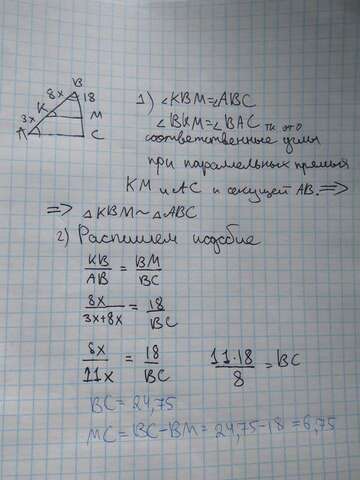 B
8x
18
K
M
3x
A
C
1) ∠KBM=∠ABC
∠BKM=∠BAC тк это
соответственные углы
при параллельных прямых
KM и AC и секущей AB. ⟹
⟹ △KBM ~ △ABC
2) Распишем подобие
KB/AB = BM/BC
8x/3x+8x = 18/BC
8x/11x = 18/BC
11·18/8 = BC
BC = 24,75
MC = BC-BM = 24,75-18 = 6,75